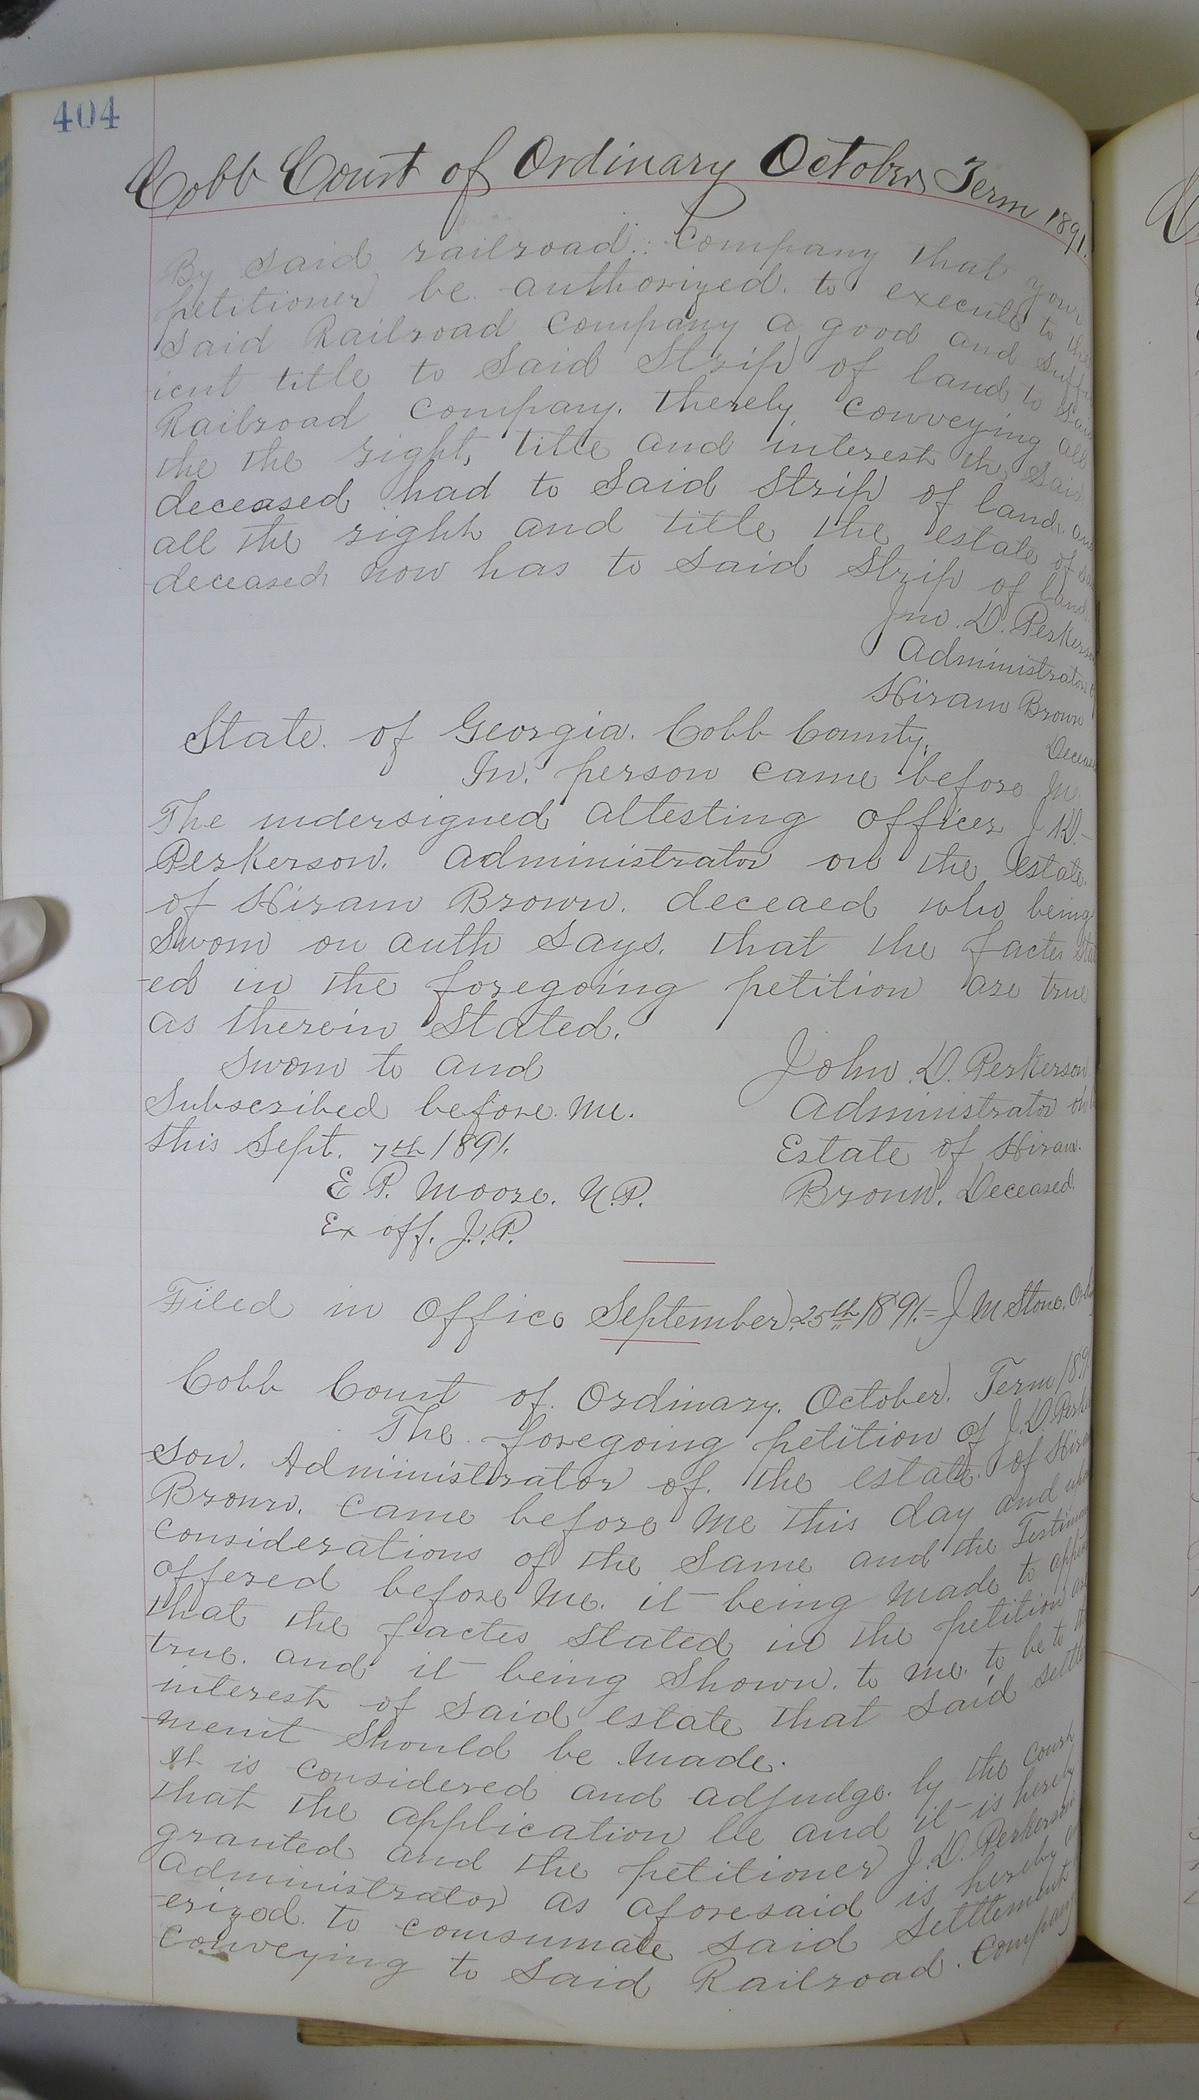 404
Cobb Court of Ordinary October Term 1891.
By said railroad Company that your
petitioner be authorized to execute to the
said Railroad Company a good and suffi
icut title to said Strip of land to said
Railroad Company. therely conveying all
the the right, title and interest the said
deceased had to said strip of land and
all the right and title the estate of
deceased now has to said strip of land.
Jno. D. Perkerson
Administrator
Hiram Brown
Deceased
State of Georgia. Cobb County.
In person came before me
The undersigned attesting officer J D.
Perkerson. administrator on the estate
of Hiram Brown. deceaed who being
Sworn on auth says. that the factes stat
ed in the foregoing petition are true
as therein stated.
Sworn to and
Subscribed before me.
this Sept. 7th 1891.
E P. Moore. N.P.
Ex off. J.P.
John D. Perkerson
administrator on
Estate of Hiram
Brown. Deceased.
Filed in office September 25th 1891.- J M Stone. Ordy
Cobb Court of Ordinary. October. Term 189
The foregoing petition of J. D. Perker
son. Administrator of. the estate of Hiram
Brown. came before me this day and upon
considerations of the same and the Testimony
offered before me. it being made to appear
that the factes stated in the petition are
true. and it being shown. to me. to be to the
interest of said estate that said settle
ment should be made.
It is considered and adjudge by the court
that the application be and it is hereby
granted and the petitioner J. D. Perkerson
administrator as aforesaid is hereby
erized to comsumate said settlement
conveying to said Railroad. Company